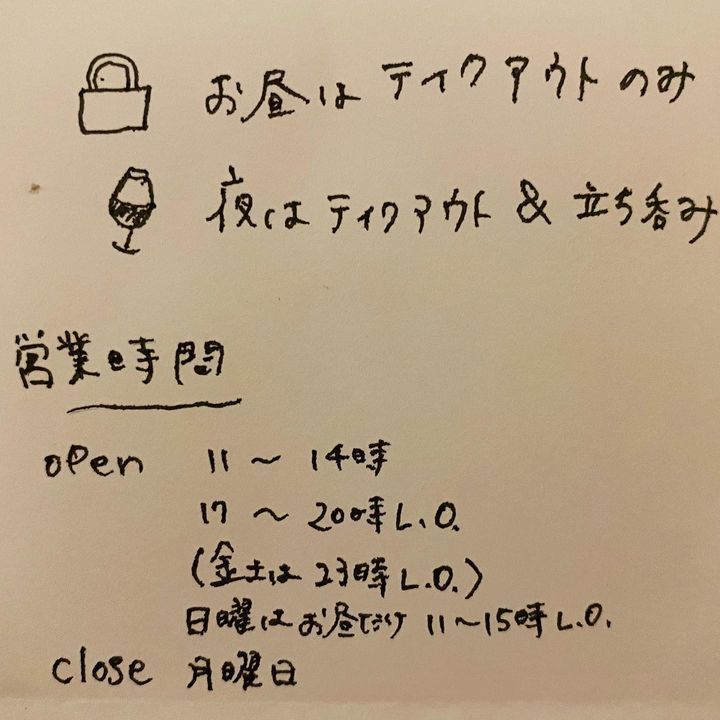 お昼は テイクアウト のみ
夜は テイクアウト & 立ち呑み
営業時間
open 11 〜 14時
17 〜 20時 L.O.
(金土は 23時 L.O.)
日曜は お昼だけ 11〜15時 L.O.
close 月曜日